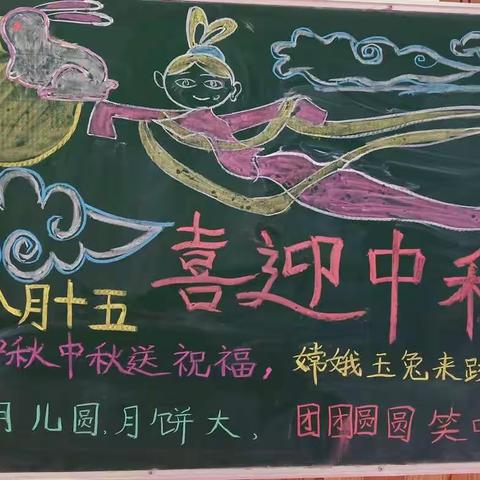 喜迎中秋
八月十五
中秋中秋送祝福，嫦娥玉兔来
月儿圆，月饼大，团团圆圆笑